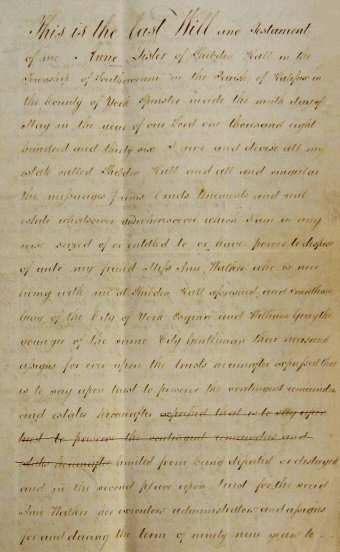 This is the last Will and Testament
of me Anne Lister of Shibden Hall in the
Township of Southowram in the Parish of Halifax in
the County of York Spinster made the ninth day of
May in the year of our Lord one thousand eight
hundred and thirty six I give and devise all my
estate called Shibden Hall and all and singular
the messuages farms lands tenements and real
estate whatsoever and wheresoever which I am in any
wise seized of or entitled to or have power to dispose
of unto my friend Miss Ann Walker who is now
living with me at Shibden Hall aforesaid and Jonathan
Gray of the City of York Esquire and William Gray the
younger of the same City Gentleman their heirs and
assigns for ever upon the trusts hereinafter expressed that
is to say upon trust to preserve the contingent remainders
and estates hereinafter expressed that is to say upon
trust to preserve the contingent remainders and
estates hereinafter limited from being defeated or destroyed
and in the second place upon trust for the said
Ann Walker her executors administrators and assigns
for and during the term of ninety nine years to